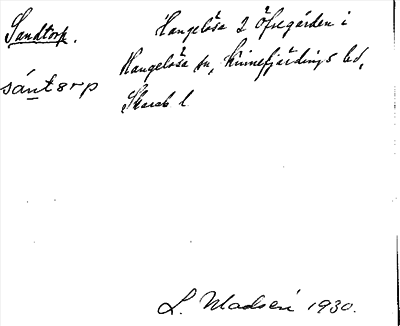 Sandtorp. Hangelösa 2 Öfregården i
Hangelösa sn, Kinnefjärdings hd,
sántorp
Skarab l
L. Madsén 1930.